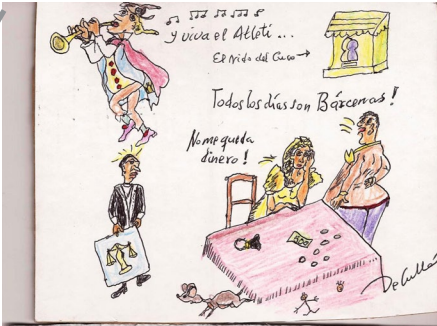 y viva el Atleti...
El Nido del Cuco →
Todos los días son Bárcenas!
No me queda
dinero!
500